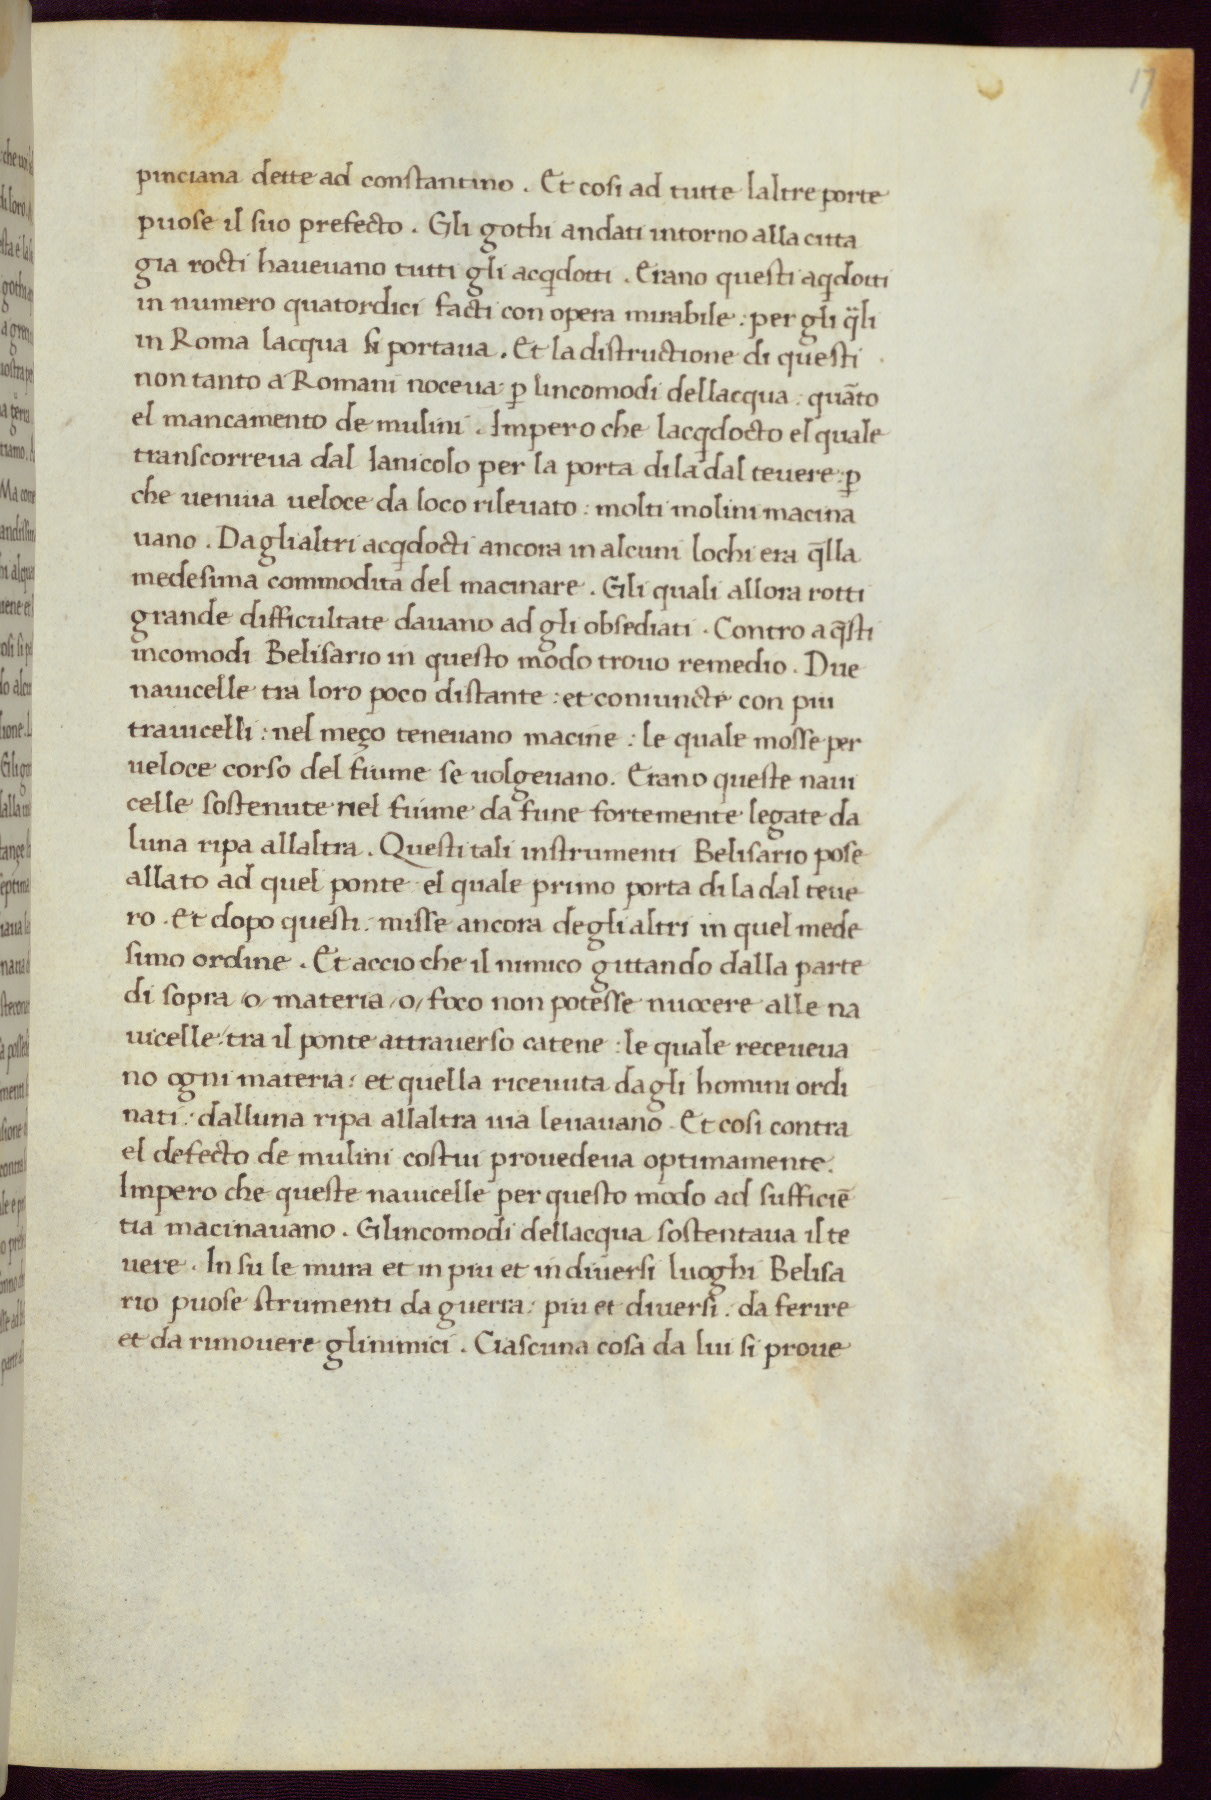 17
pinciana dette ad constantino . Et cosi ad tutte laltre porte
puose il suo prefecto . Gli gothi andati intorno alla citta
gia rocti havevano tutti gli acq̄dotti . Erano questi aq̄dotti
in numero quatordici facti con opera mirabile : per gli q̄li
in Roma lacqua si portaua . Et la distructione di questi
non tanto a Romani noceua : ꝑ lincomodi dellacqua : quāto
el mancamento de mulini . Impero che lacq̄docto el quale
transcorreua dal Ianicolo per la porta di la dal teuere : ꝑ
che ueniua ueloce da loco rileuato : molti molini macina
uano . Da gli altri acq̄docti ancora in alcuni lochi era q̄lla
medesima commodita del macinare . Gli quali allora rotti
grande difficultate dauano ad gli obsediati . Contro a q̄sti
incomodi Belisario in questo modo trouo remedio . Due
nauicelle tra loro poco distante : et coniuncte con piu
trauicelli : nel meço teneuano macine : le quale mosse per
ueloce corso del fiume se uolgeuano . Erano queste naui
celle sostenute nel fiume da fune fortemente legate da
luna ripa allaltra . Questi tali instrumenti Belisario pose
allato ad quel ponte el quale primo porta di la dal teue
ro . Et dopo questi . misse ancora degli altri in quel mede
simo ordine . Et accio che il nimico gittando dalla parte
di sopra /o/ materia /o/ foco non potesse nuocere alle na
uicelle : tra il ponte attrauerso catene : le quale receueua
no ogni materia : et quella riceuuta dagli homini ordi
nati : dalluna ripa allaltra uia leuauano . Et cosi contra
el defecto de mulini costui prouedeua optimamente .
Impero che queste nauicelle per questo modo ad sufficiē
tia macinauano . Glincomodi dellacqua sostentaua il te
uere . In su le mura et in piu et in diuersi luoghi Belisa
rio puose strumenti da guerra : piu et diuersi . da ferire
et da rimouere glinimici . Ciascuna cosa da lui si proue